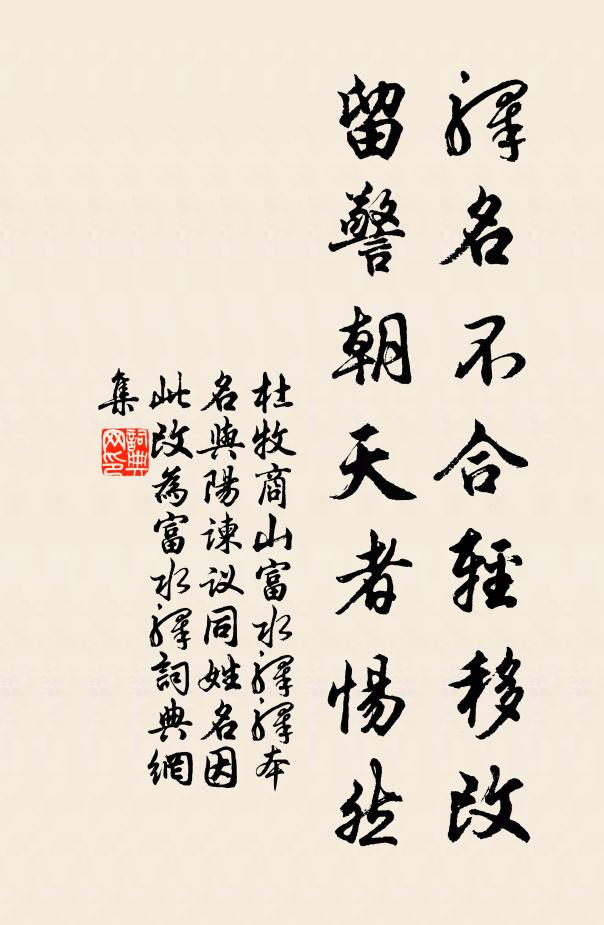 驛名不合輕移改
留警朝天者惕然
杜牧商山富水驛驛本
名與陽諫议同姓名因
此改為富水驛詞典網
集
詞典网印